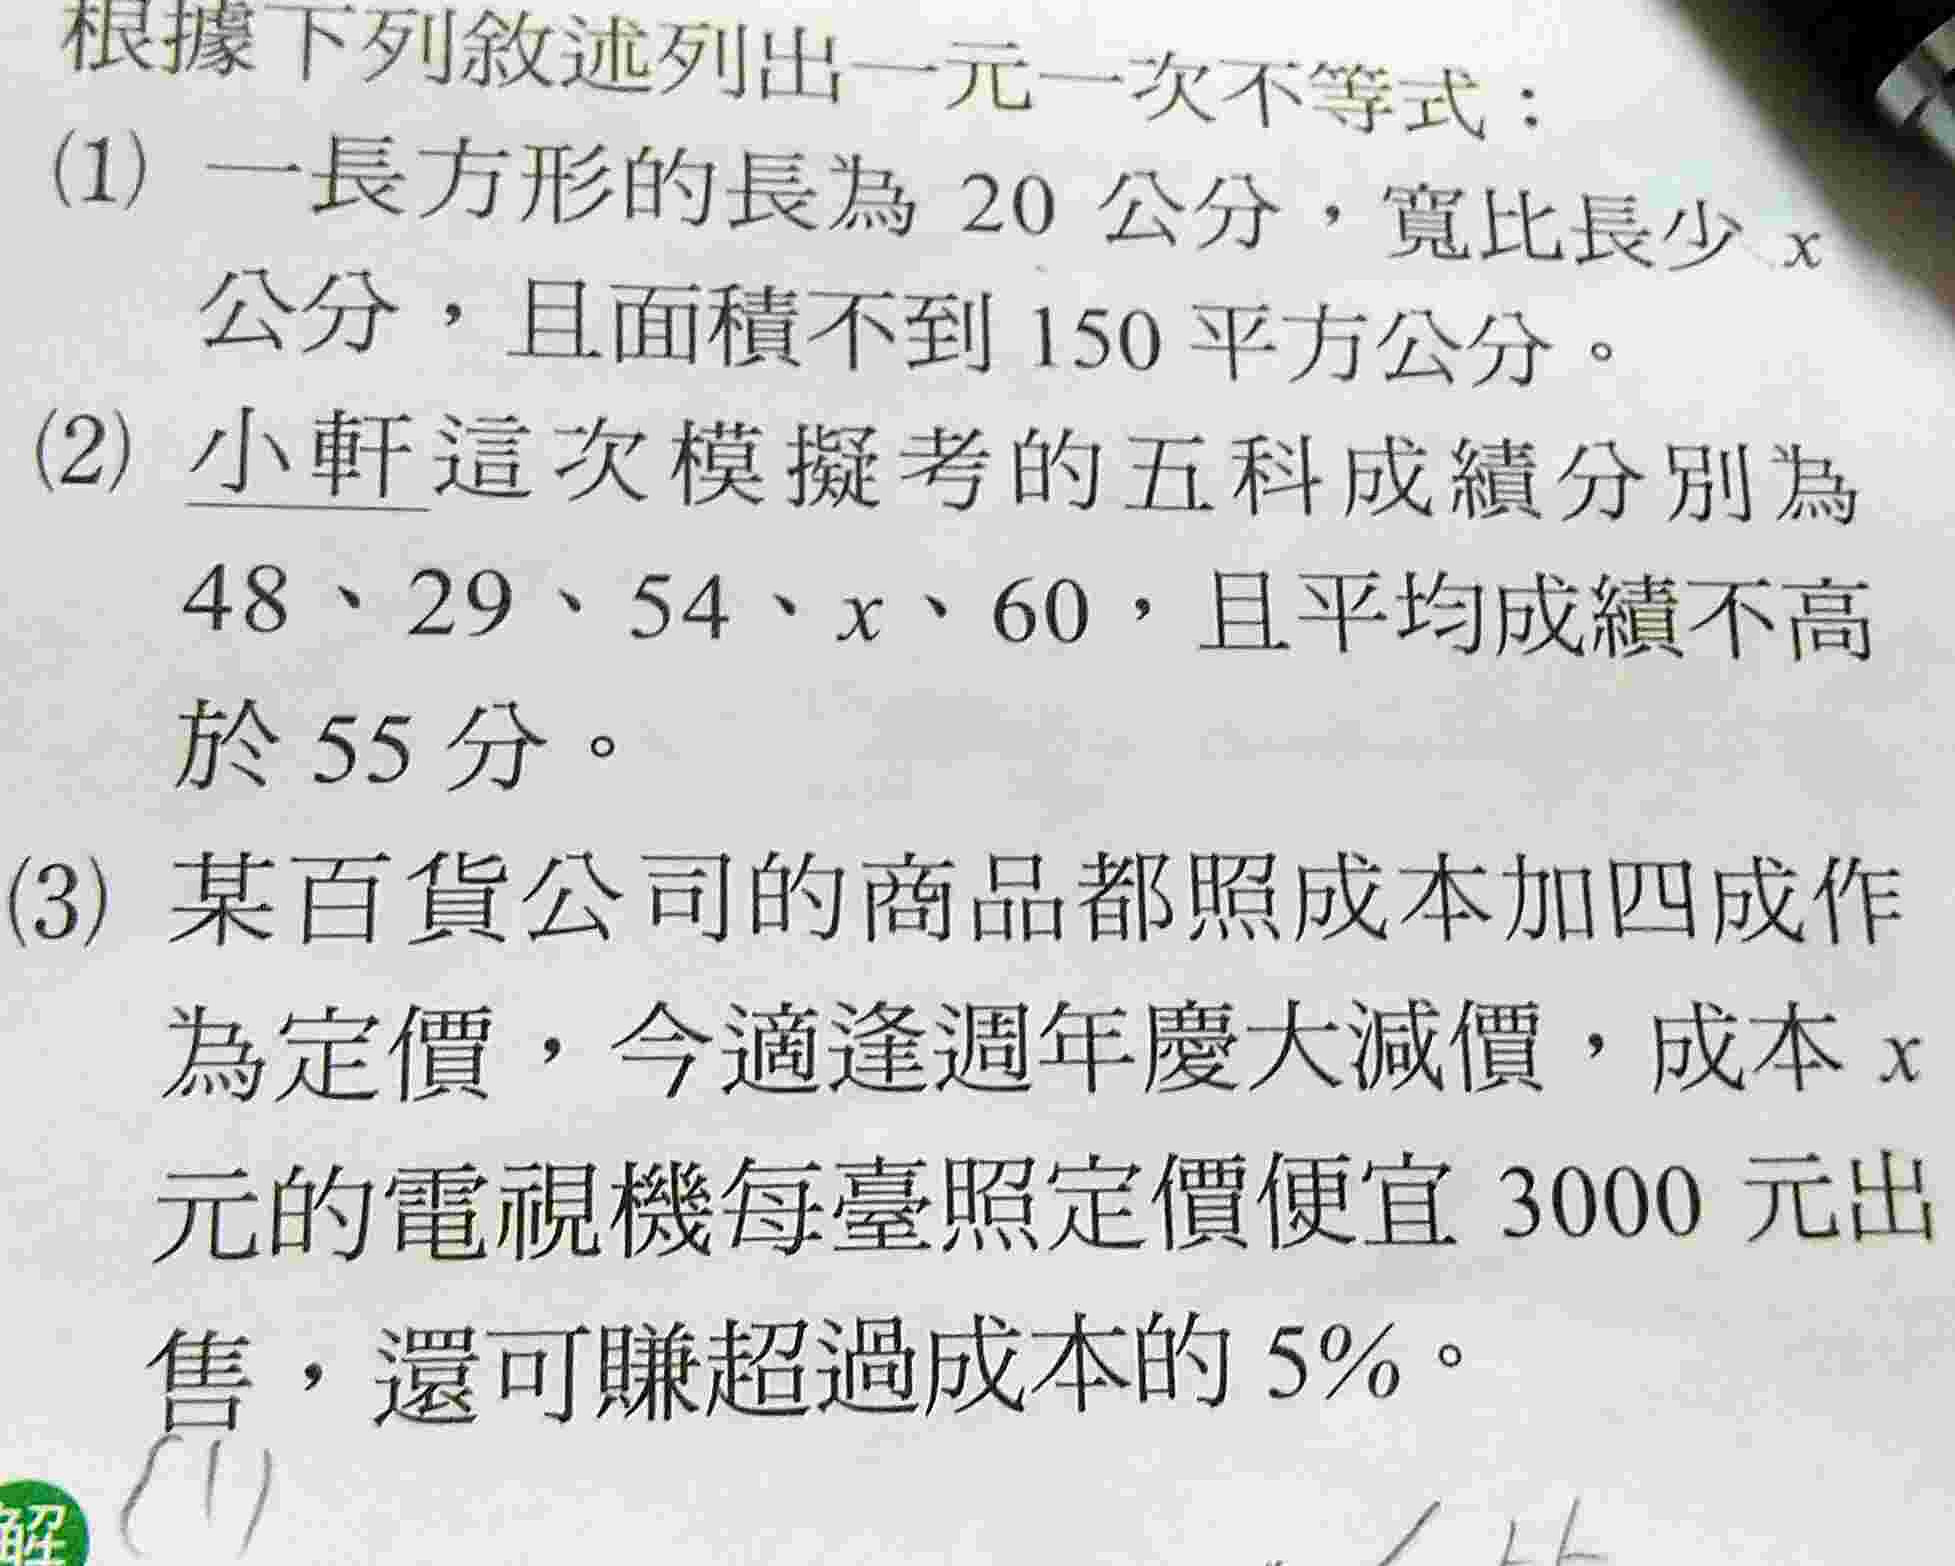 根據下列敘述列出一元一次不等式：
(1) 一長方形的長為 20 公分，寬比長少 x
公分，且面積不到 150 平方公分。
(2) 小軒這次模擬考的五科成績分別為
48、29、54、x、60，且平均成績不高
於 55 分。
(3) 某百貨公司的商品都照成本加四成作
為定價，今適逢週年慶大減價，成本 x
元的電視機每臺照定價便宜 3000 元出
售，還可賺超過成本的 5%。
解 (1)